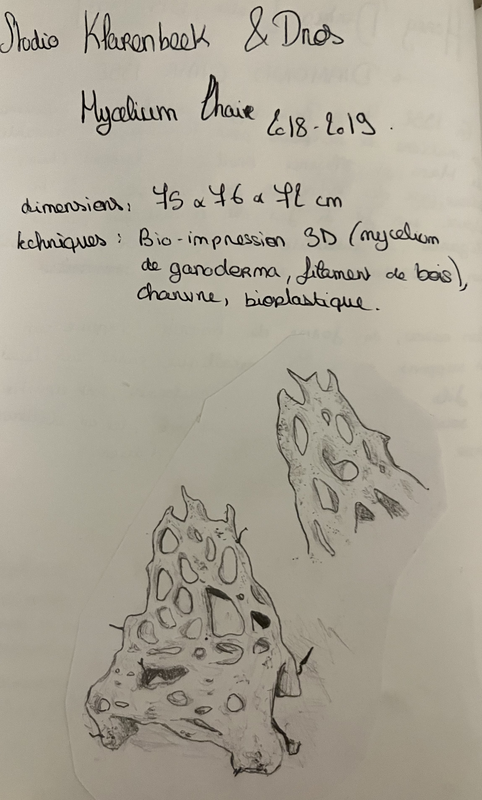 Studio Klarenbeek & Dros
Mycelium Chair 2018-2019.
dimensions: 75 x 76 x 72 cm
techniques: Bio-impression 3D (mycelium
de ganoderma, filament de bois),
chanvre, bioplastique.